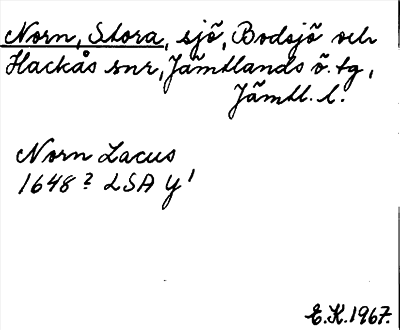 Norn, Stora, sjö, Bodsjö och
Hackås snr, Jämtlands ö. tg,
Jämtl. l.
Norn Lacus
1648? LSA Y¹
E.K. 1967.